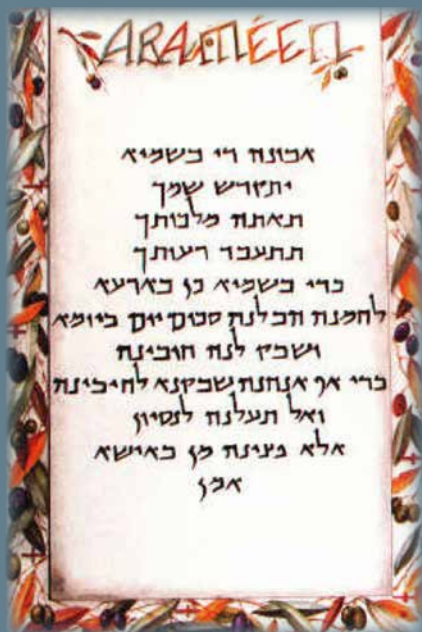 ARAMÉEN
אבונה די בשמיא
יתקדש שמך
תאתה מלכותך
תתעבד רעותך
כדי בשמיא כן בארעא
לחמנה הבלנה סכום יום ביומא
ושבק לנה חובינה
כדי אף אנחנה שבקנא לחיבינה
ואל תעלנה לנסיון
אלא פצינה מן באישא
אמן